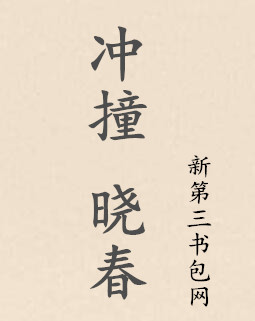 冲撞 晓春
新第三书包网